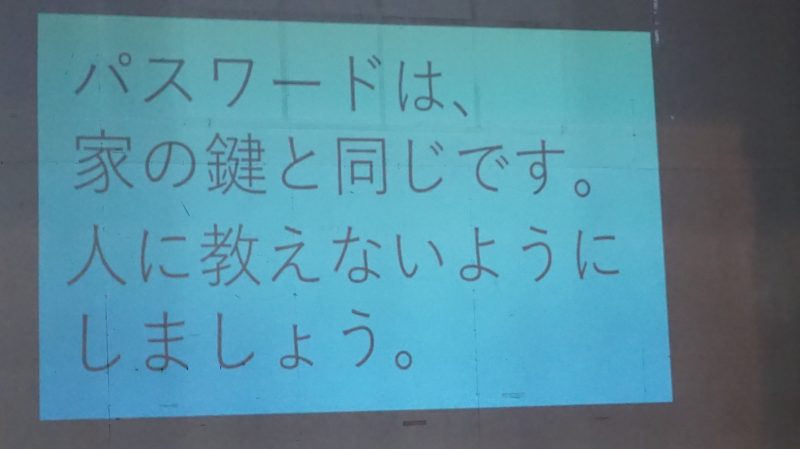 パスワードは、
家の鍵と同じです。
人に教えないように
しましょう。